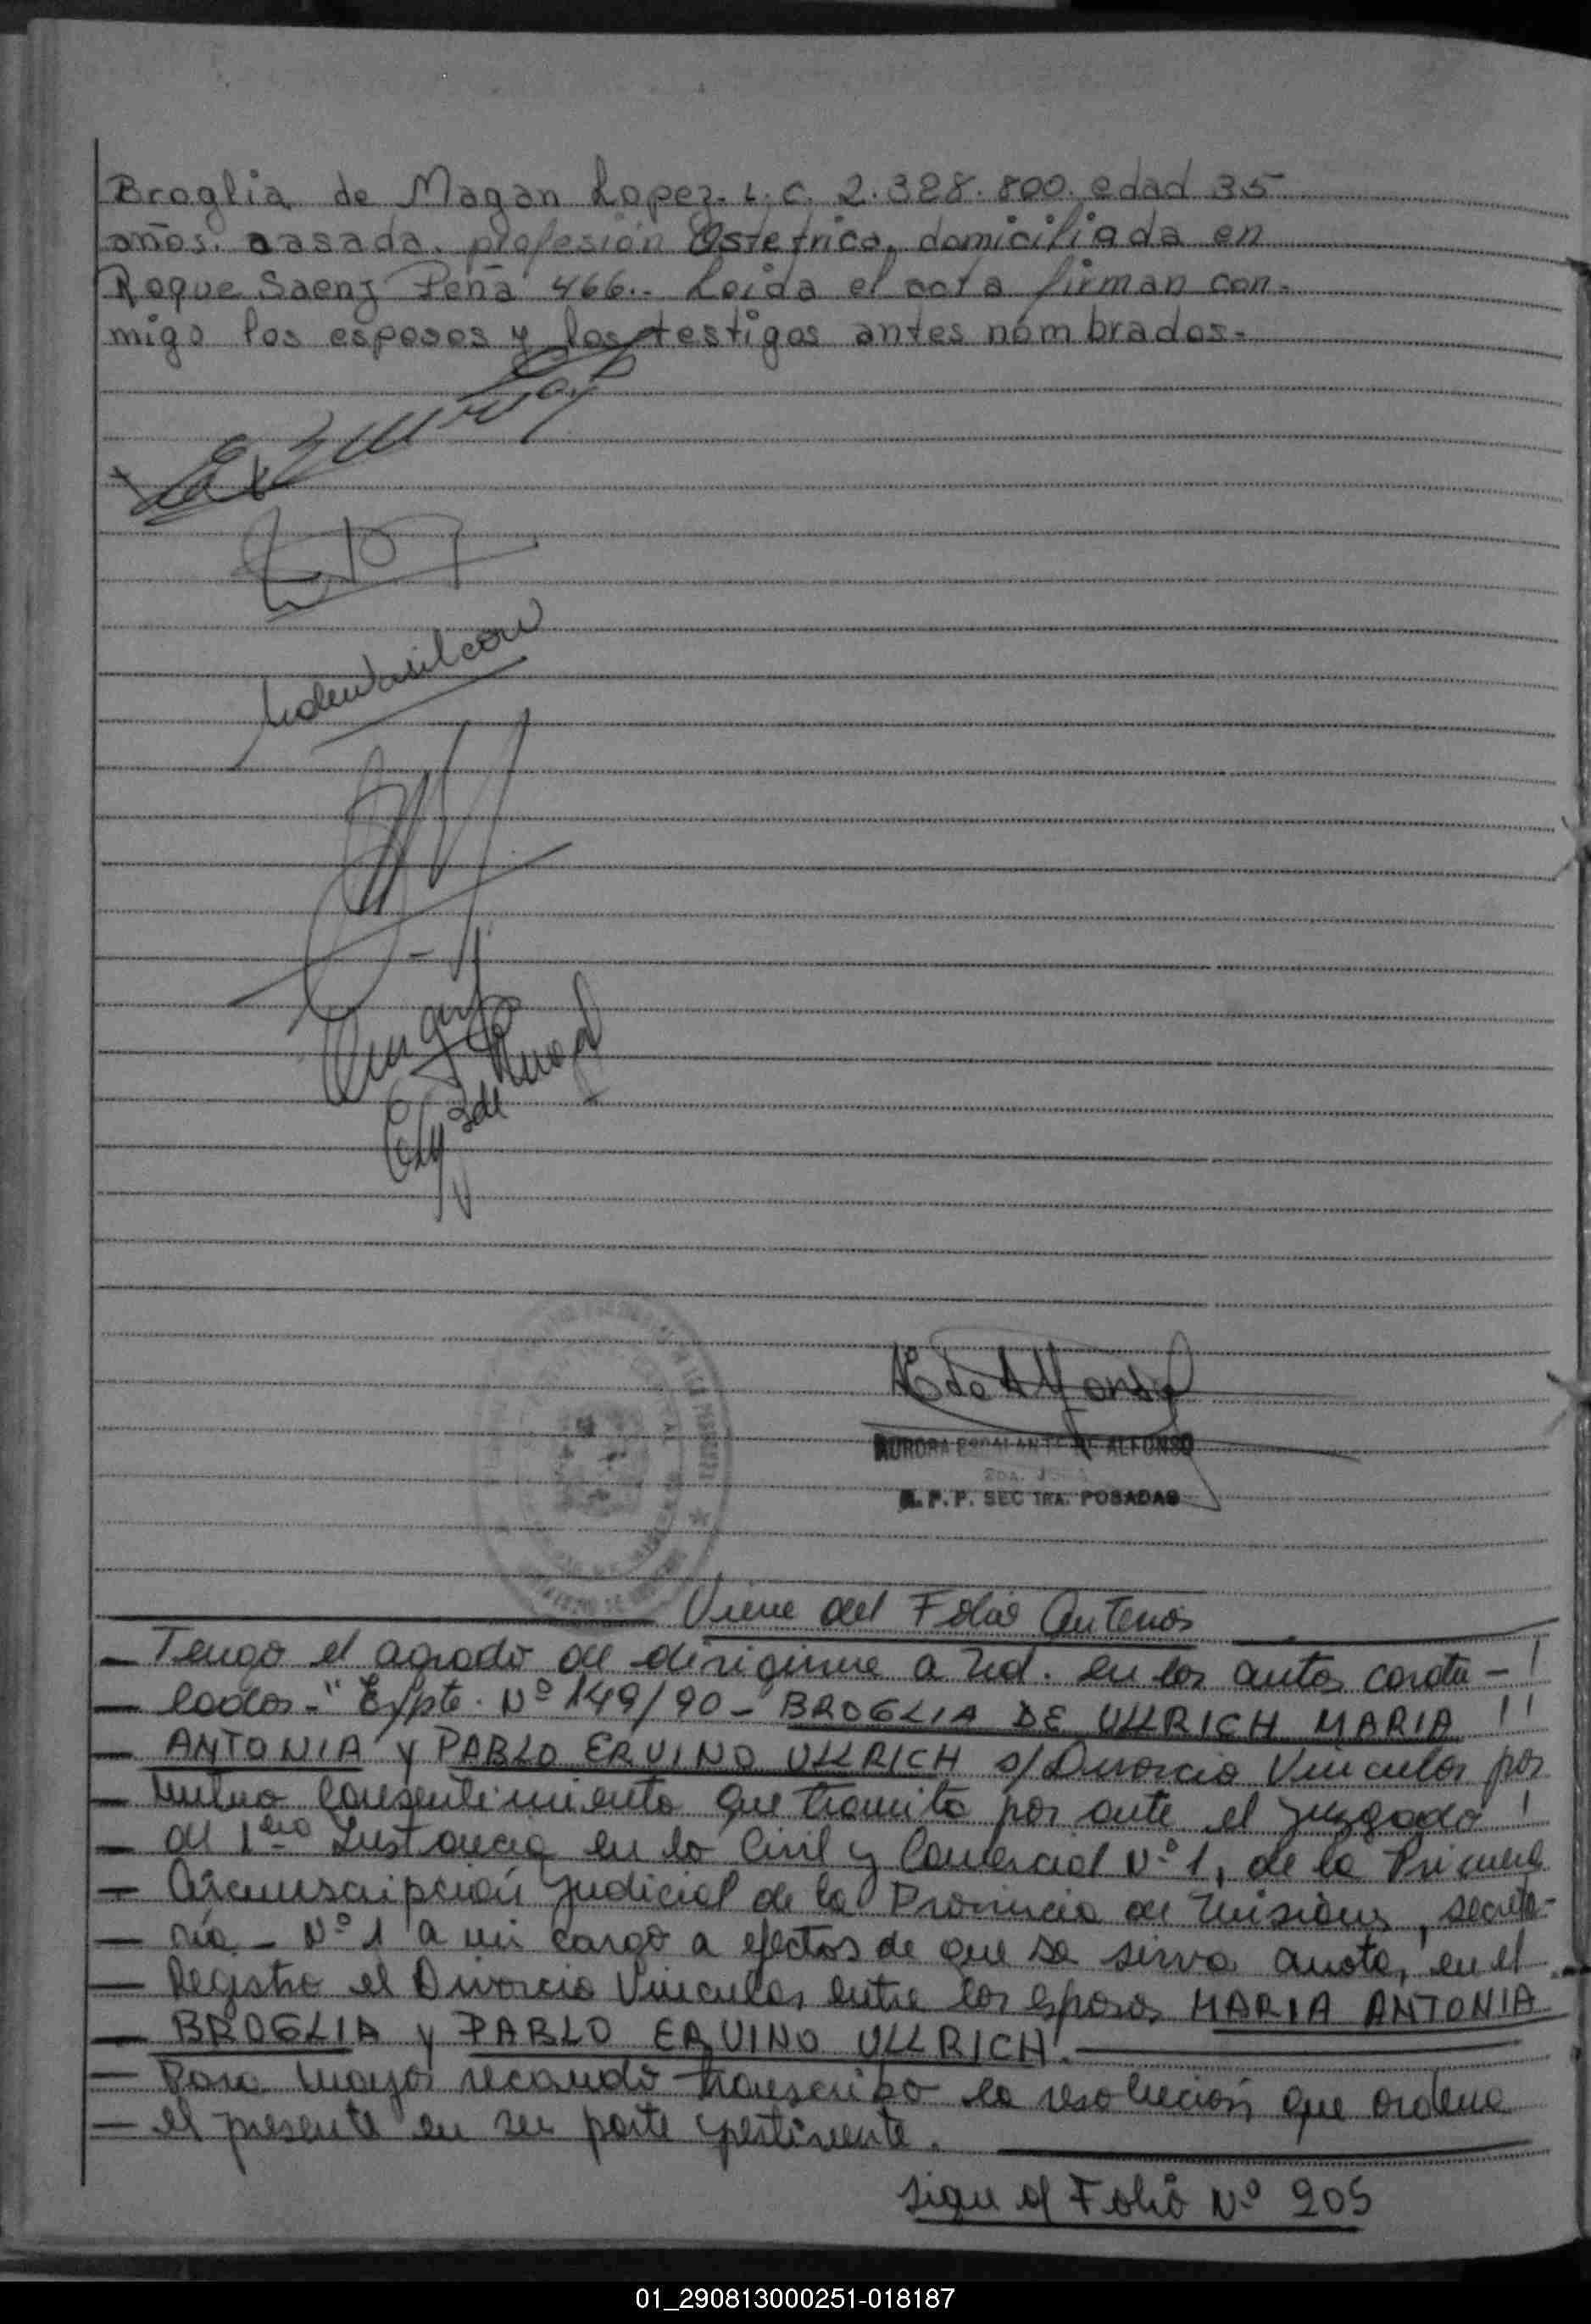 Broglia de Magan Lopez. L. C. 2.328.800. edad 35
años. casada. profesión Ostetrica, domiciliada en
Roque Saenz Peña 466.- Leida el acta firman con-
migo los esposos y los testigos antes nombrados.-
AURORA ESCALANTE DE ALFONSO
R. P. P. SEC 1RA. POSADAS
Viene del Folio Anterior
Tengo el agrado de dirigirme a Ud. en los autos caratu-
lados-" Expte. Nº 149/90 - BROGLIA DE ULLRICH MARIA
ANTONIA y PABLO ERVINO ULLRICH s/ Divorcio Vincular por
Mutuo Consentimiento que tramita por ante el Juzgado
de 1era Instancia en lo Civil y Comercial Nº 1, de la Primera
Circunscripción Judicial de la Provincia de Misiones, secreta-
ría - Nº 1 a mi cargo a efectos de que se sirva anotar, en el
Registro el Divorcio Vincular entre los esposos MARIA ANTONIA
BROGLIA y PABLO ERVINO ULLRICH.
Para mayor recaudo transcribo la resolución que ordena
el presente en su parte pertinente.
sigue al Folio Nº 205
01_290813000251-018187